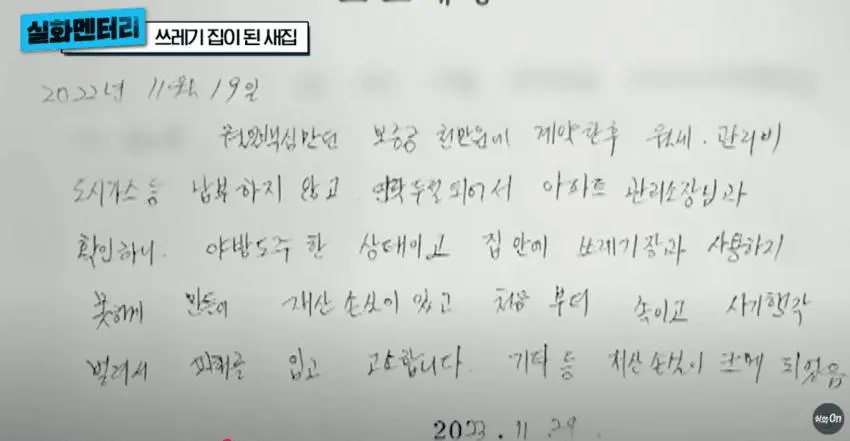 실화멘터리
쓰레기 집이 된 새집
2022년 11월 19일
보증금 천만원에 계약한후 월세. 관리비
도시가스 등 납부하지 않고 연락두절되어서 아파트 관리소장님과
확인하니. 야밤도주 한 상태이고 집안에 쓰레기장과 사용하지
못하게 만들어 재산손실이 있고 처음부터 속이고 사기행각
벌려서 피해를 입고 고소합니다. 기타 등 재산손실이 크게 되었음
실화On
2023. 11. 29